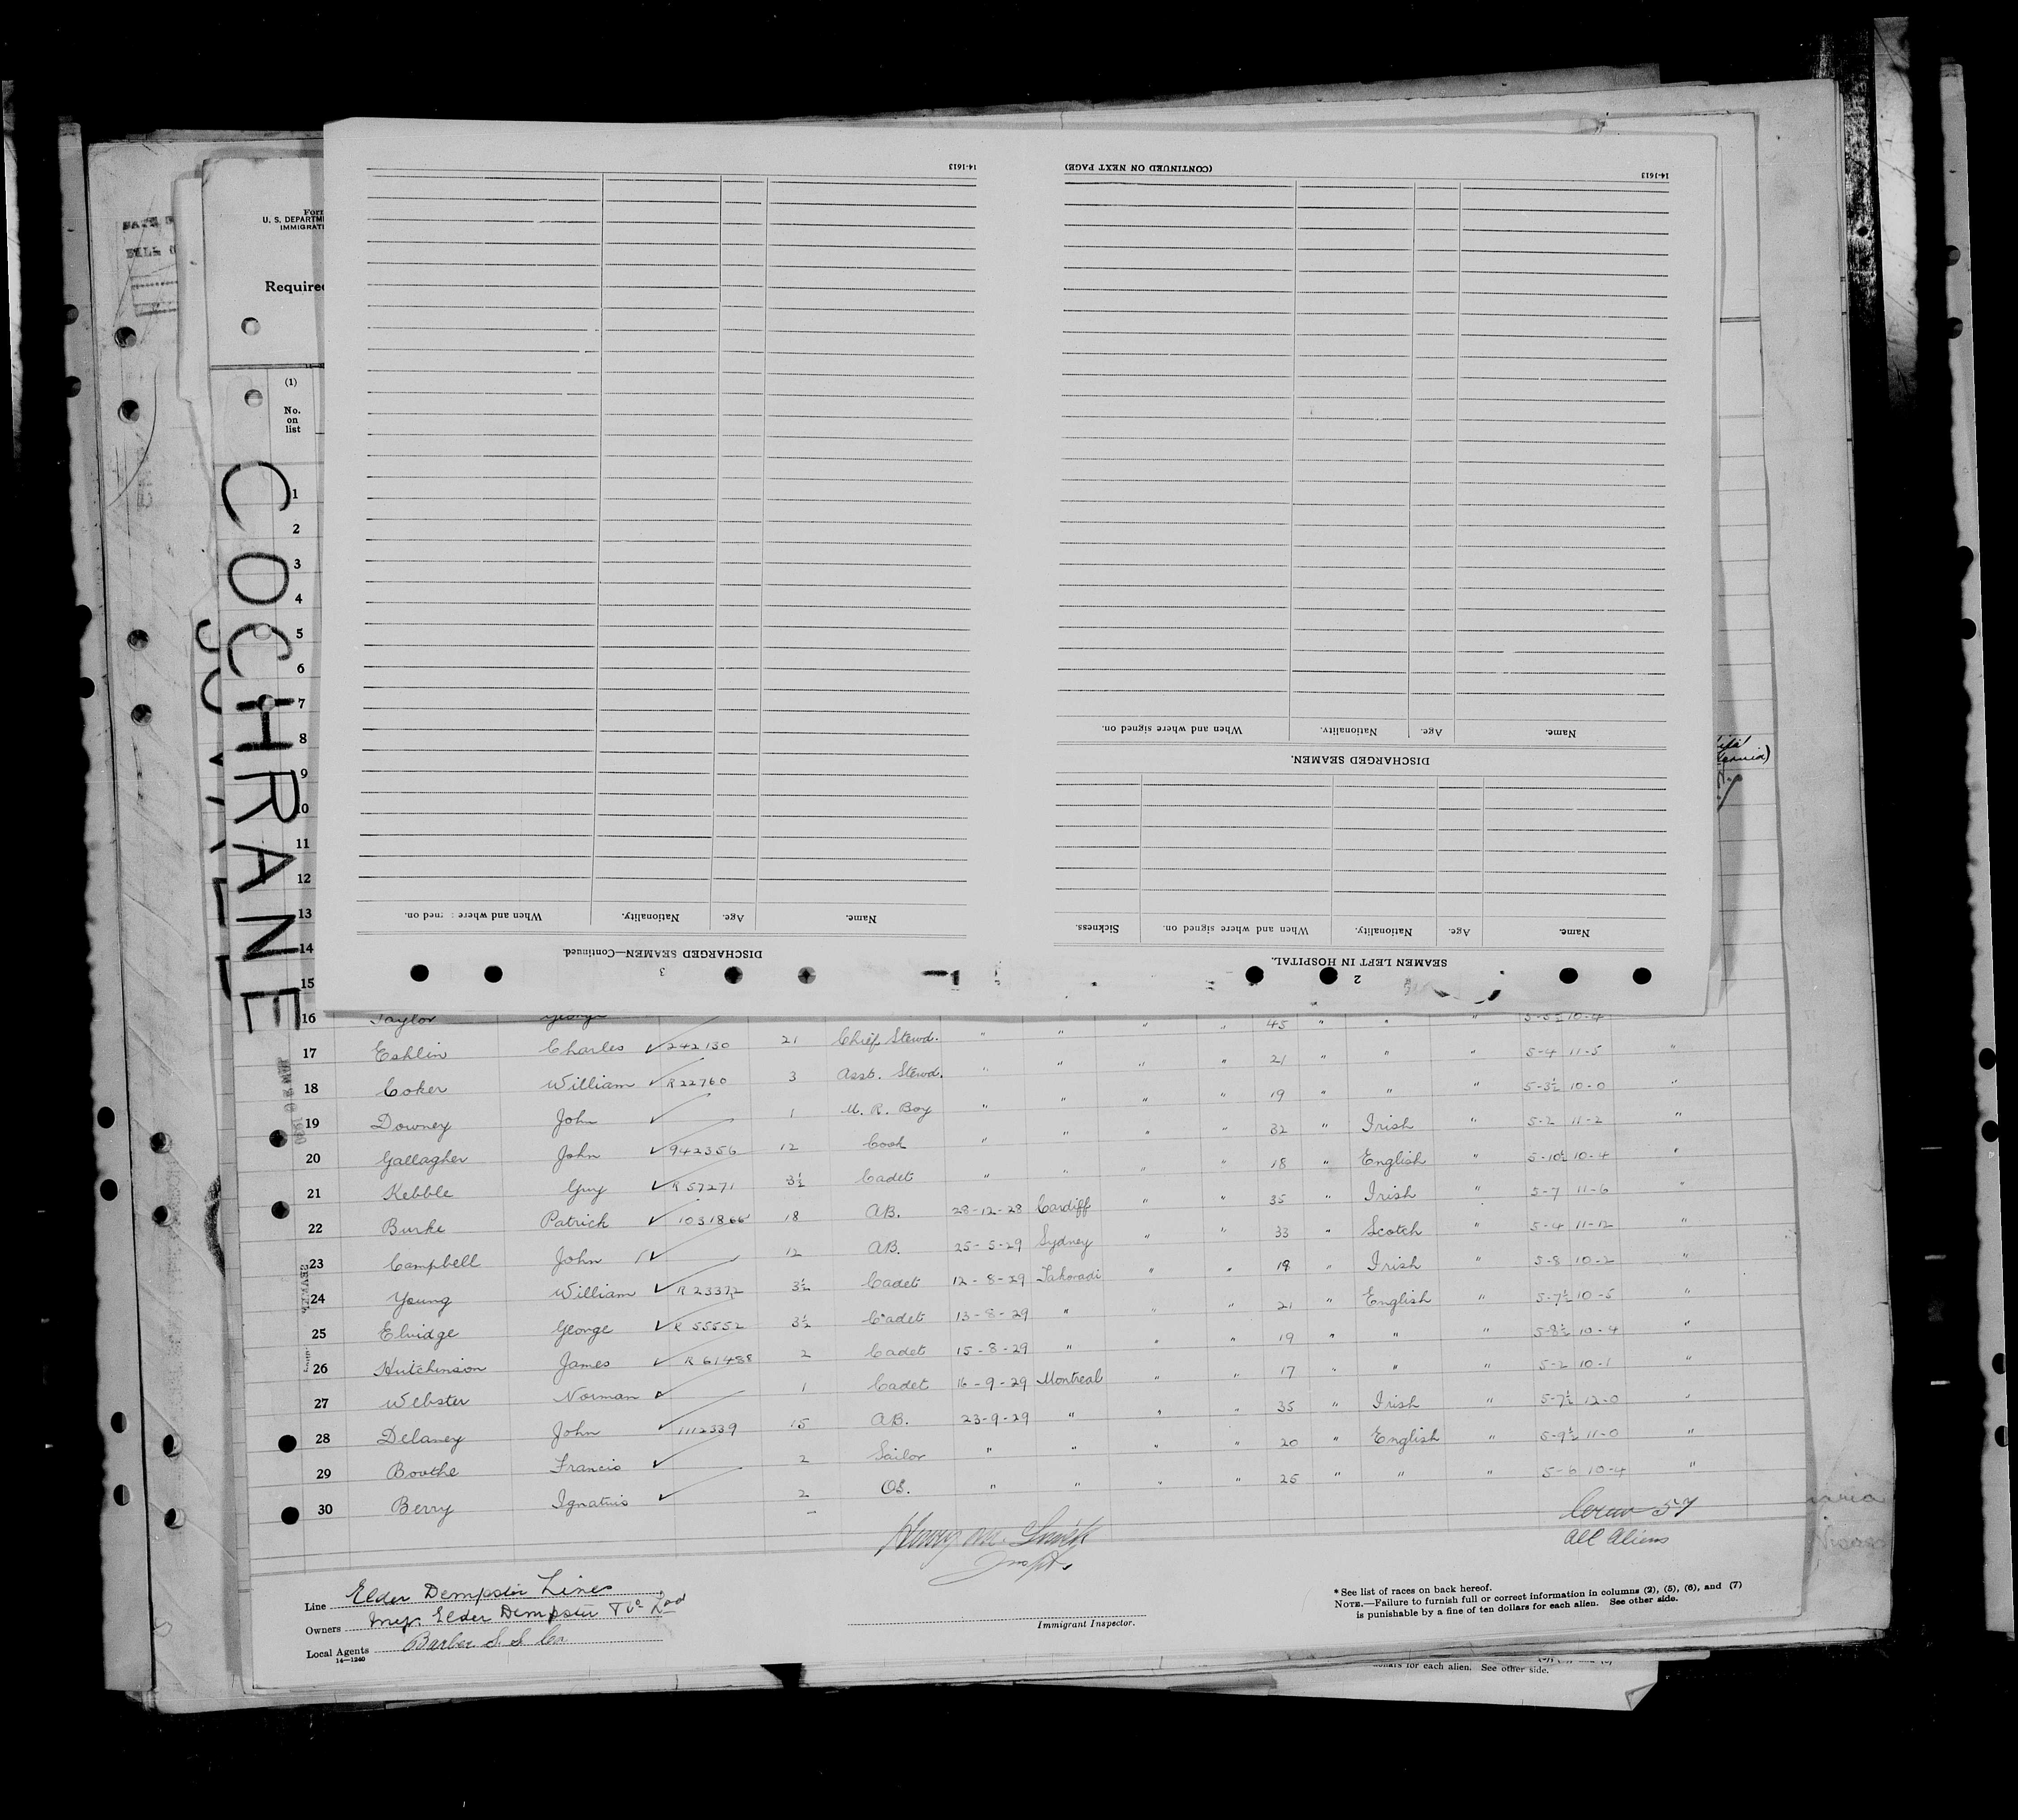 14-1613
(CONTINUED ON NEXT PAGE)
14-1613
When and where signed on.
Nationality.
Age.
Name.
DISCHARGED SEAMEN.
Name.
Age.
Nationality.
When and where
DISCHARGED SEAMEN—Continued.
3
Sickness.
When and where signed on.
Nationality.
Age.
Name.
SEAMEN LEFT IN HOSPITAL.
2
U. S. DEPARTM
IMMIGRATI
Require
(1)
No.
on
list
COCHRANE
1
2
3
4
5
6
7
8
9
10
11
12
13
14
15
16 Taylor George
17 Eshlin Charles ✓ 242130 21 Chief Stewd. " " " " 45 " " " 5-5½ 10-4
18 Coker William ✓ R22760 3 Asst. Stewd. " " " " 21 " " " 5-4 11-5 "
19 Downey John ✓ 1 M. R. Boy " " " " 19 " " " 5-3½ 10-0 "
20 Gallagher John ✓ 942356 12 Cook " " " " 32 " Irish " 5-2 11-2 "
21 Kebble Guy ✓ R 57271 3½ Cadet " " " " 18 " English " 5-10½ 10-4 "
22 Burke Patrick ✓ 1031866 18 A.B. 28-12-28 Cardiff " " 35 " Irish " 5-7 11-6 "
23 Campbell John ✓ 12 A.B. 25-5-29 Sydney " " 33 " Scotch " 5-4 11-12 "
24 Young William ✓ R 23372 3½ Cadet 12-8-29 Takoradi " " 19 " Irish " 5-8 10-2 "
25 Elvidge George ✓ R 55552 3½ Cadet 13-8-29 " " " 21 " English " 5-7½ 10-5 "
26 Hutchinson James ✓ R 61488 2 Cadet 15-8-29 " " " 19 " " " 5-8½ 10-4 "
27 Webster Norman ✓ 1 Cadet 16-9-29 Montreal " " 17 " " " 5-2 10-1 "
28 Delaney John ✓ 1112339 15 A.B. 23-9-29 " " " 35 " Irish " 5-7½ 12-0 "
29 Boothe Francis ✓ 2 Sailor " " " " 20 " English " 5-9½ 11-0 "
30 Berry Ignatius ✓ 2 O.S. " " " " 25 " " " 5-6 10-4 "
Crew 57
All Aliens
Insptr.
Line Elder Dempster Lines
Owners Elder Dempster
Local Agents Barber S. S. Co
14—1240
Immigrant Inspector.
* See list of races on back hereof.
NOTE.—Failure to furnish full or correct information in columns (2), (5), (6), and (7)
is punishable by a fine of ten dollars for each alien. See other side.
for each alien. See other side.